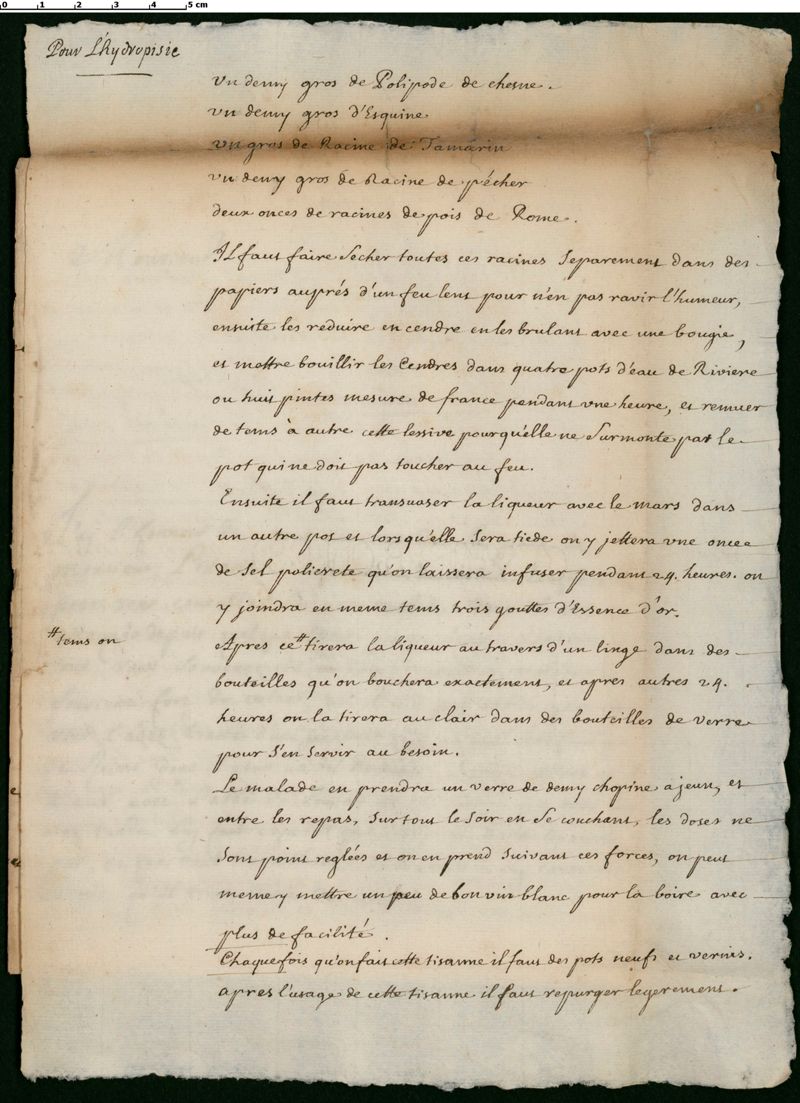 0 1 2 3 4 5 cm
Pour L'hydropisie
vn demy gros de Polipode de chesne.
vn demy gros d'Esquine
vn gros de Racine de Tamarin
vn demy gros de Racine de pécher
deux onces de racines de pois de Rome.
Il faut faire secher toutes ces racines separement dans des
papiers auprés d'un feu lent pour n'en pas ravir l'humeur,
ensuite les reduire en cendre en les brulant avec une bougie,
et mettre bouillir les Cendres dans quatre pots d'eau de Riviere
ou huit pintes mesure de france pendant vne heure, et remuer
de tems à autre cette lessive pour qu'elle ne surmonte pas le
pot qui ne doit pas toucher au feu.
Ensuite il faut transuaser la liqueur avec le mars dans
un autre pot et lorsqu'elle sera tiede on y jettera vne once
de sel policrete qu'on laissera infuser pendant 24. heures. on
y joindra en meme tems trois gouttes d'Essence d'or.
# tems on
Apres ce # tirera la liqueur au travers d'un linge dans des
bouteilles qu'on bouchera exactement, et apres autres 24.
heures on la tirera au clair dans des bouteilles de verre
pour s'en servir au besoin.
Le malade en prendra un verre de demy chopine a jeun, et
entre les repas, sur tout le soir en se couchant, les doses ne
sont point reglées et on en prend suivant ces forces, on peut
meme y mettre un peu de bon vin blanc pour la boire avec
plus de facilité.
Chaque fois qu'on fait cette tisanne il faut des pots neufs et vernis.
apres l'usage de cette tisanne il faut repurger legerement.